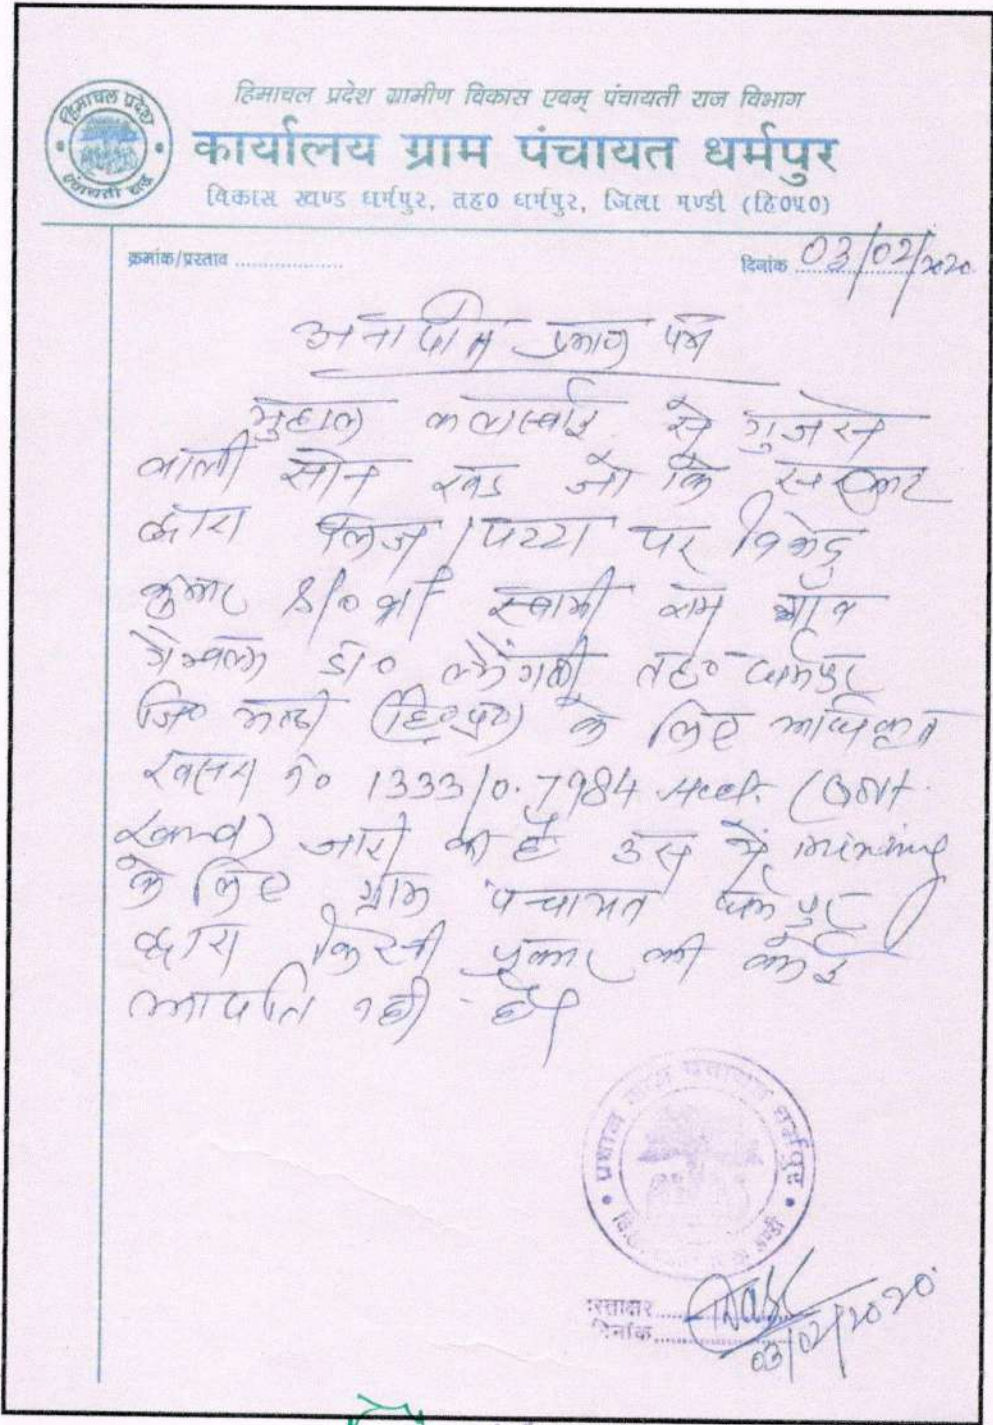 हिमाचल प्रदेश ग्रामीण विकास एवम् पंचायती राज विभाग
हिमाचल प्रदेश
पंचायती राज
कार्यालय ग्राम पंचायत धर्मपुर
विकास खण्ड धर्मपुर, तह0 धर्मपुर, जिला मण्डी (हि0प्र0)
क्रमांक/प्रस्ताव ..................
दिनांक 03/02/2020
अनापत्ति प्रमाण पत्र
मुहाल से गुजरने
वाली सोन खड जो कि सरकार
द्वारा लिज / पट्टा पर
कुमार S/o श्री स्वामी राम गाँव
डा० तह० धर्मपुर
जि० मण्डी (हि०प्र०) के लिए अधिकृत
खसरा नं० 1333/0.7984 Hect. (Govt.
Land) जारी की है उस में mining
के लिए ग्राम पंचायत धर्मपुर
द्वारा किसी प्रकार की कोई
आपत्ति नही है।
प्रधान ग्राम पंचायत धर्मपुर
मण्डी
हस्ताक्षर
दिनांक 03/02/2020